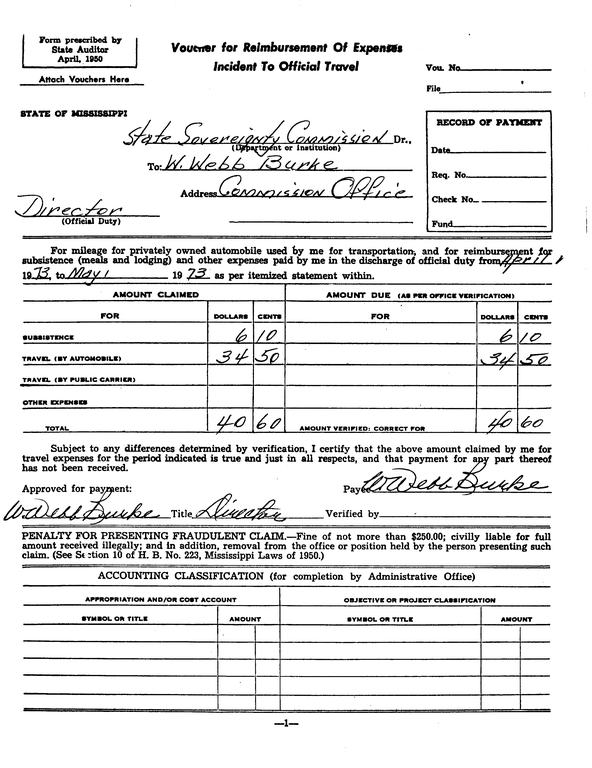 Form prescribed by
State Auditor
April, 1950
Attach Vouchers Here
Voucher for Reimbursement Of Expenses
Incident To Official Travel
Vou. No.
File
STATE OF MISSISSIPPI
State Sovereignty Commission Dr.,
(Department or Institution)
To: W. Webb Burke
Address Commission Office
Director
(Official Duty)
RECORD OF PAYMENT
Date
Req. No.
Check No.
Fund
For mileage for privately owned automobile used by me for transportation, and for reimbursement for
subsistence (meals and lodging) and other expenses paid by me in the discharge of official duty from April 1
1973, to May 1 1973 as per itemized statement within.
AMOUNT CLAIMED AMOUNT DUE (AS PER OFFICE VERIFICATION)
FOR DOLLARS CENTS FOR DOLLARS CENTS
SUBSISTENCE 6 10 6 10
TRAVEL (BY AUTOMOBILE) 34 50 34 50
TRAVEL (BY PUBLIC CARRIER)
OTHER EXPENSES
TOTAL 40 60 AMOUNT VERIFIED: CORRECT FOR 40 60
Subject to any differences determined by verification, I certify that the above amount claimed by me for
travel expenses for the period indicated is true and just in all respects, and that payment for any part thereof
has not been received.
Approved for payment: Payee W. Webb Burke
W. Webb Burke Title Director Verified by
PENALTY FOR PRESENTING FRAUDULENT CLAIM.—Fine of not more than $250.00; civilly liable for full
amount received illegally; and in addition, removal from the office or position held by the person presenting such
claim. (See Section 10 of H. B. No. 223, Mississippi Laws of 1950.)
ACCOUNTING CLASSIFICATION (for completion by Administrative Office)
APPROPRIATION AND/OR COST ACCOUNT OBJECTIVE OR PROJECT CLASSIFICATION
SYMBOL OR TITLE AMOUNT SYMBOL OR TITLE AMOUNT
—1—